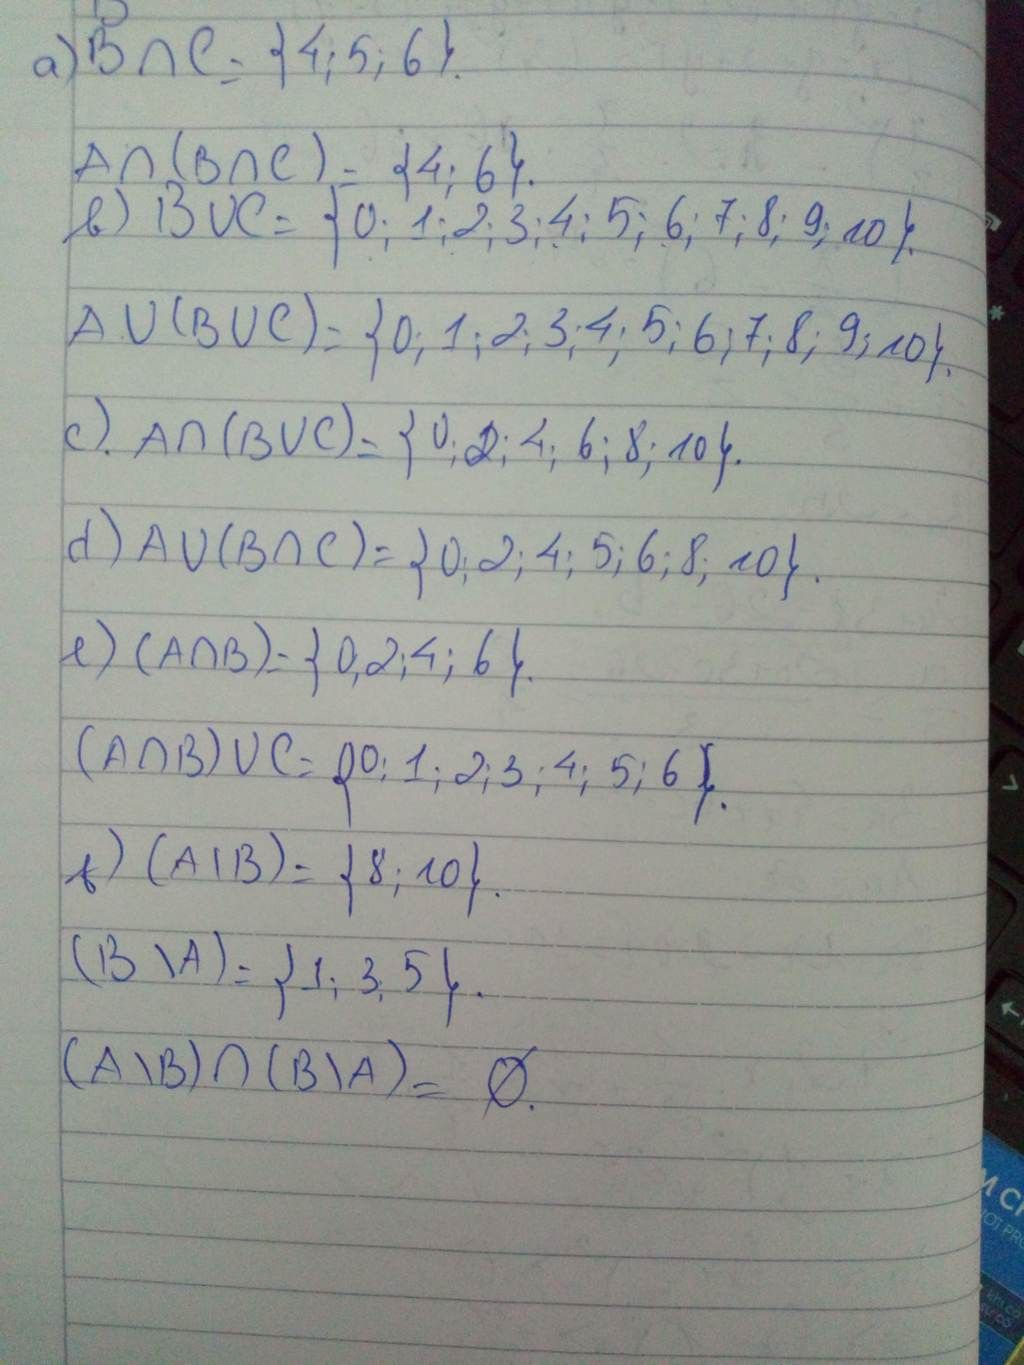 a) B∩C = {4; 5; 6}.
A∩(B∩C) = {4; 6}.
b) B∪C = {0; 1; 2; 3; 4; 5; 6; 7; 8; 9; 10}.
A∪(B∪C) = {0; 1; 2; 3; 4; 5; 6; 7; 8; 9; 10}.
c). A∩(B∪C) = {0; 2; 4; 6; 8; 10}.
d) A∪(B∩C) = {0; 2; 4; 5; 6; 8; 10}.
e) (A∩B) = {0, 2; 4; 6}.
(A∩B)∪C = {0; 1; 2; 3; 4; 5; 6}.
f) (A\B) = {8; 10}.
(B\A) = {1; 3, 5}.
(A\B)∩(B\A) = Ø.